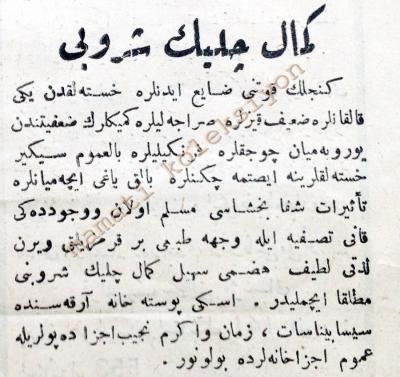 كمال چليك شروبى
كنجلك قوتنى ضايع ايدنلره خسته لقدن يكى
قالقانلره ضعيف قزلره صراجه ليلره كميكلرك ضعفيتندن
يورويه ميان چوجقلره فرنكيليلره بالعموم سيكير
خسته لقلرينه ايصتمه چكنلره بالق ياغى ايچه ميانلره
تأثيرات شفا بخشاسى مسلم اولان ووجودده كى
قانى تصفيه ايله وجهه طبيعى بر ويرن
لذتى لطيف هضمى سهيل كمال چليك شروبنى
مطلقا ايچمليدر . اسكى پوسته خانه آرقه سنده
زمان واكرم نجيب اجزا ده پولريله
عموم اجزاخانه لرده بولونور .
Hamdi koleksiyon